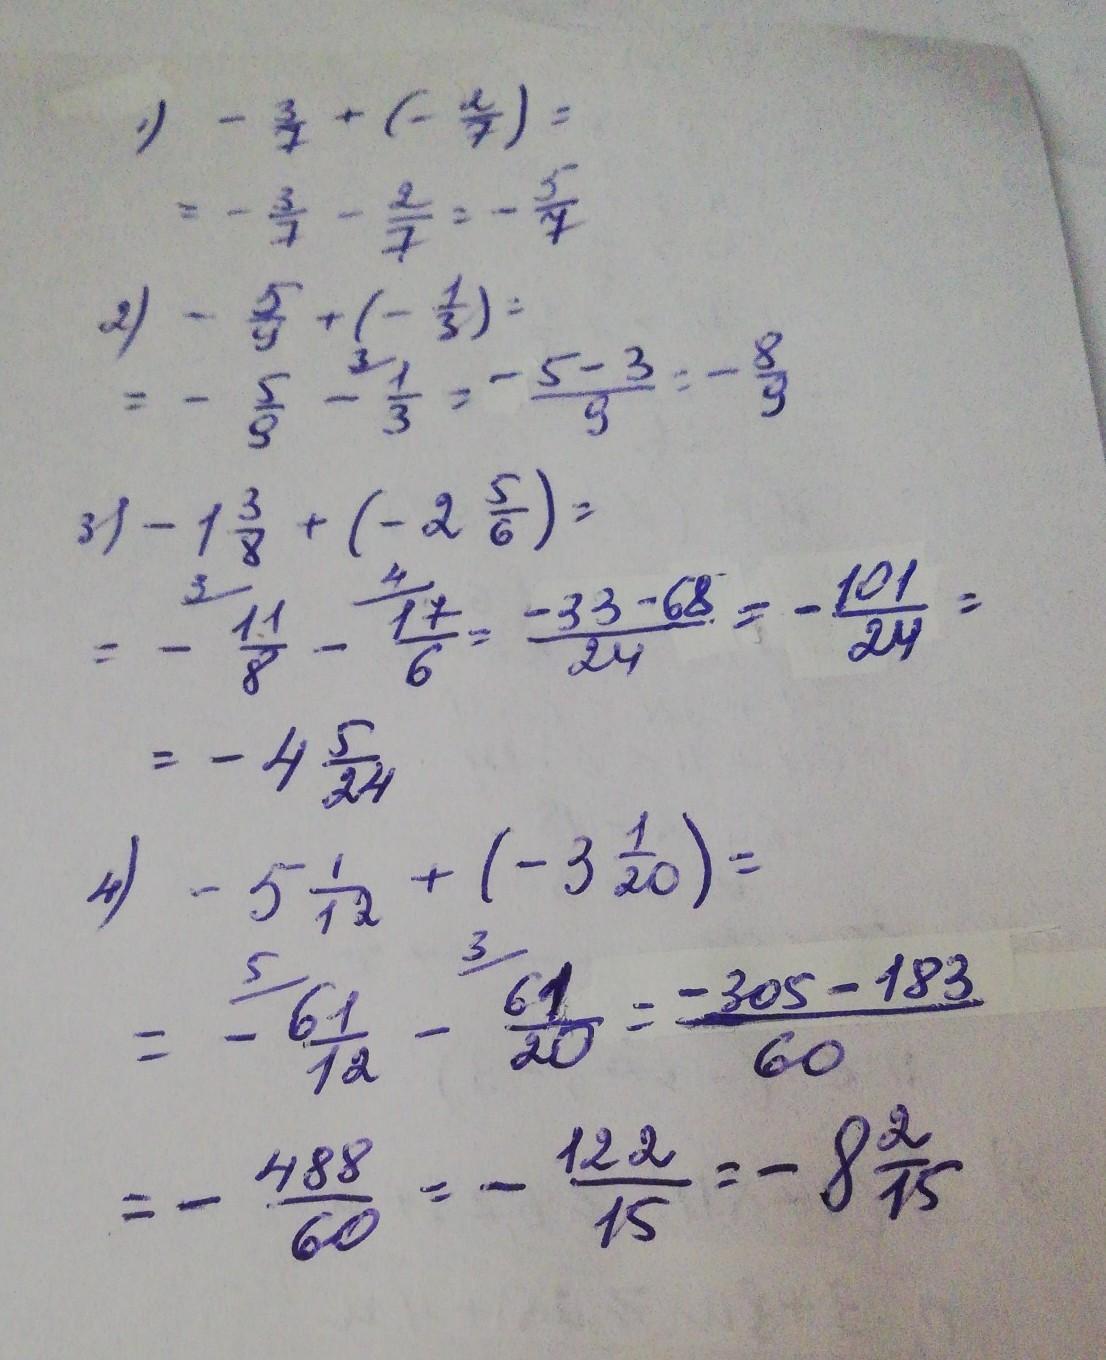 1) - 3/7 + (- 2/7) =
= - 3/7 - 2/7 = - 5/7
2) - 5/9 + (- 1/3) =
= - 5/9 - 3/ 1/3 = - 5 - 3/9 = - 8/9
3) - 1 3/8 + (- 2 5/6) =
= - 3/ 11/8 - 4/ 17/6 = -33-68/24 = - 101/24 =
= - 4 5/24
4) - 5 1/12 + (- 3 1/20) =
= - 5/ 61/12 - 3/ 61/20 = -305 - 183/60
= - 488/60 = - 122/15 = - 8 2/15